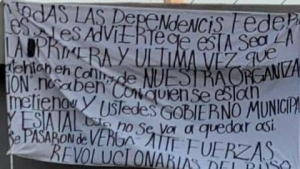 TODAS LAS DEPENDENCIS FEDER
LES SE LES ADVIERTE QE ESTA SEA LA
LA PRIMERA Y ULTIMA VEZ QUE
atentan en contra de NUESTRA ORGANIZA
ION, no saben con quien se estan
metieno y USTEDES GOBIERNO MUNICIPA
y ESTATAL este no se va a quedar asi
se PASARON de VERGA ATTE FUERZAS
REVOLUCIONARIAS DEL